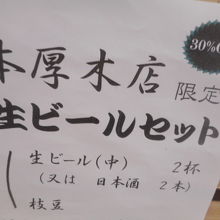 30%O
本厚木店 限定
生ビールセット
生ビール(中) 2杯
(又は 日本酒 2本)
枝豆